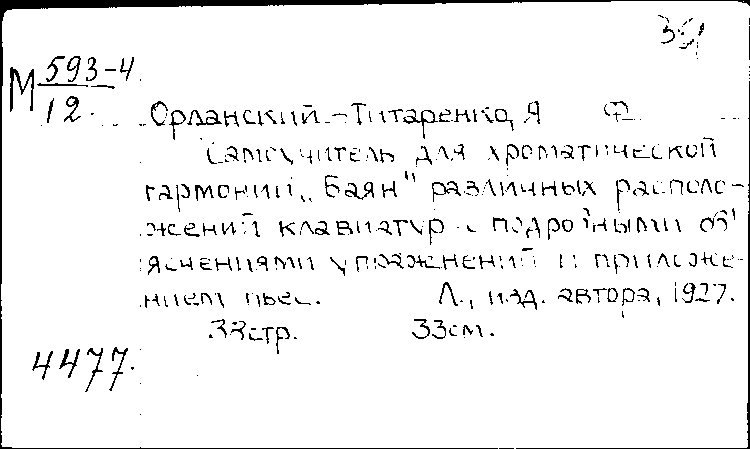 М 593-4
12.
Орланский-Титаренко, Я Ф
Самоучитель для хроматической
гармонии „Баян" различных располо-
жений клавиатур с подробными об'
яснениями упражнений и приложе-
нием пьес. Л., изд. автора, 1927.
33стр. 33см.
4477.